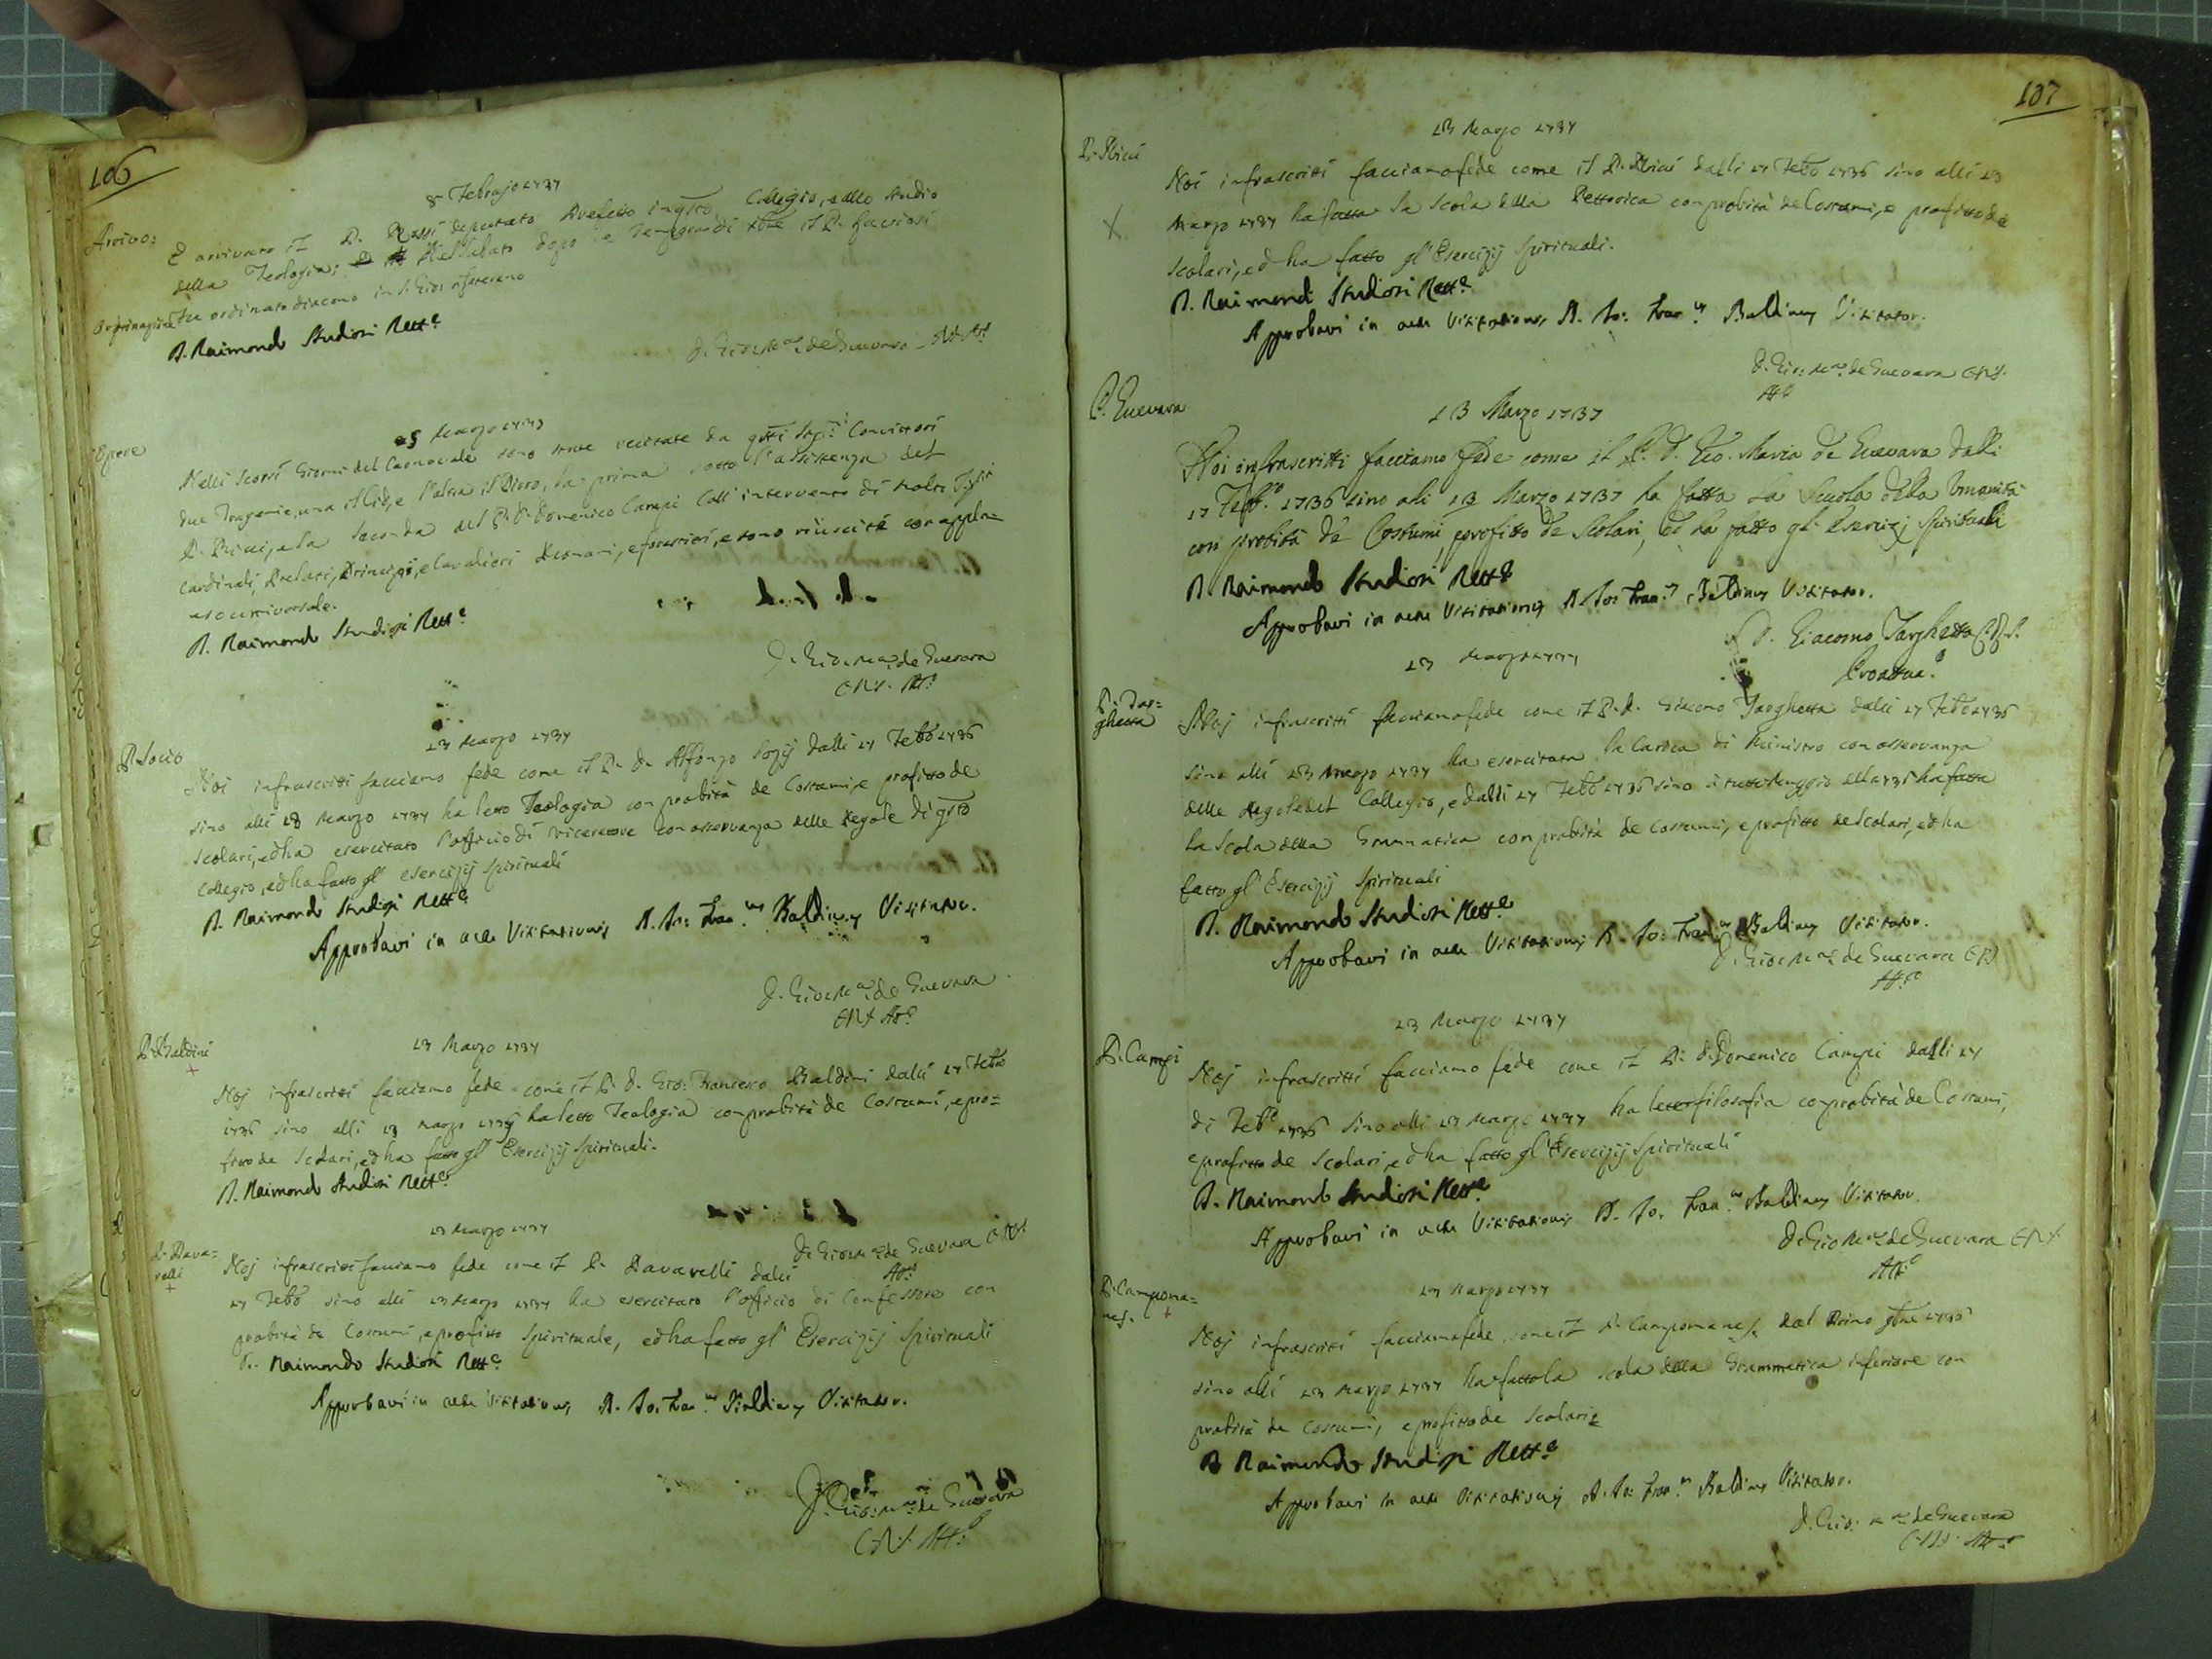 106
8 Febrajo 1737
Arrivo:
E arrivato il P. Rossi deputato Prefetto in qsto Collegio, e allo studio
della Teologia; Nel Sabato dopo le Tempora di il P.
Ordinazione
fu ordinato diacono in S. Gio: Laterano
D. Raimondo Studiosi Rett.e
D. Gio: M.a de Guevara Att.o
Opere
5 Marzo 1737
Nelli scorsi Giorni del Carnovale sono state recitate da qsti Sig.ri Convittori
due Tragedie, una il Cid, e l'altra il Pirro, la prima sotto l'assistenza del
P. Ricci, e la seconda del P. D. Domenico Campi coll' intervento di molti Sig.ri
Cardinali, Prelati, Principi, e Cavalieri Romani, e forastieri, e sono riuscite con appla=
uso universale.
D. Raimondo Studiosi Rett.e
D. Gio: M.a de Guevara
C.R.S. Att.o
13 Marzo 1737
P. Socio
Noi infrascritti facciamo fede come il P. D. Alfonzo Sozij dalli 17 Febo 1736
sino alli 13 Marzo 1737 ha letto Teologia con probità de Costumi, e profitto de
Scolari, ed ha esercitato l'officio di Vicerettore con osservanza delle Regole di qsto
Collegio, ed ha fatto gl' esercizij spirituali
D. Raimondo Studiosi Rett.e
Approbavi in actu Visitationis D. Jo: Fran.us Baldinus Visitator.
D. Gio: M.a de Guevara
C.R.S. Att.o
13 Marzo 1737
P. Baldini
+
Noj infrascritti facciamo fede come il P. D. Gio: Francesco Baldini dalli 17 Febo
1736 sino alli 13 Marzo 1737 ha letto Teologia con probità de Costumi, e pro=
fitto de Scolari, ed ha fatto gl' Esercizij Spirituali.
D. Raimondo Studiosi Rett.e
13 Marzo 1737
D. Gio: M.a de Guevara C.R.S.
Att.o
P. Rava=
relli
+
Noj infrascritti facciamo fede come il P. Ravarelli dalli
17 Febo sino alli 13 Marzo 1737 ha esercitato l'officio di Confessore con
probità de Costumi, e profitto Spirituale, ed ha fatto gl' Esercizij Spirituali
D. Raimondo Studiosi Rett.e
Approbavi in actu Visitationis D. Jo: Fran.us Baldinus Visitator.
D. Gio: M.a de Guevara
C.R.S. Att.o
107
13 Marzo 1737
P. Ricci
X
Noi infrascritti facciamo fede come il P. Ricci dalli 17 Febo 1736 sino alli 13
Marzo 1737 ha fatta la Scola della Rettorica con probità de Costumi, e profitto de
Scolari, ed ha fatto gl' Esercizij Spirituali.
D. Raimondi Studiosi Rett.e
Approbavi in actu Visitationis D. Jo: Fran.us Baldinus Visitator.
D. Gio: M.a de Guevara C.R.S.
Att.o
P. Guevara
13 Marzo 1737
Noi infrascritti facciamo fede come il P. D. Gio. Maria de Guevara dalli
17 Feb.o 1736 sino alli 13 Marzo 1737 ha fatta la Scuola della Umanità
con probità de Costumi, profitto de Scolari, ed ha fatto gli Esercizj Spirituali
D. Raimondo Studiosi Rett.e
Approbavi in actu Visitationis D. Jo: Fran.us Baldinus Visitator.
D. Giacomo Targhetta C.R.S.
Proattua.o
13 Marzo 1737
P. Tar=
ghetta
Noj infrascritti facciamo fede come il P. D. Giacomo Targhetta dalli 17 Febo 1736
sino alli 13 Marzo 1737 ha esercitata la Carica di Ministro con osservanza
delle Regole del Collegio, e dalli 17 Febo 1736 sino a tutto Maggio del 1736 ha fatta
la Scola della Grammatica con probità de Costumi, e profitto de Scolari, ed ha
fatto gl' Esercizij Spirituali
D. Raimondo Studiosi Rett.e
Approbavi in actu Visitationis D. Jo: Fran.us Baldinus Visitator.
D. Gio: M.a de Guevara C.R.S
Att.o
13 Marzo 1737
P. Campi
Noj infrascritti facciamo fede come il P. D. Domenico Campi dalli 17
di Feb.o 1736 sino alli 13 Marzo 1737 ha letto filosofia con probità de Costumi,
e profitto de Scolari, ed ha fatto gl' Esercizij Spirituali
D. Raimondo Studiosi Rett.e
Approbavi in actu Visitationis D. Jo. Fran.us Baldinus Visitator.
D. Gio M.a de Guevara C.R.S
Att.o
13 Marzo 1737
P. Campoma=
nes. +
Noj infrascritti facciamo fede, come il P. Campomanes dal Primo 1736
sino alli 13 Marzo 1737 ha fatto la Scola della Grammatica inferiore con
probità de Costumi, e profitto de Scolari
D. Raimondo Studiosi Rett.e
Approbavi in actu Visitationis D. Jo: Fran.us Baldinus Visitator.
D. Gio: M.a de Guevara
C.R.S. Att.o